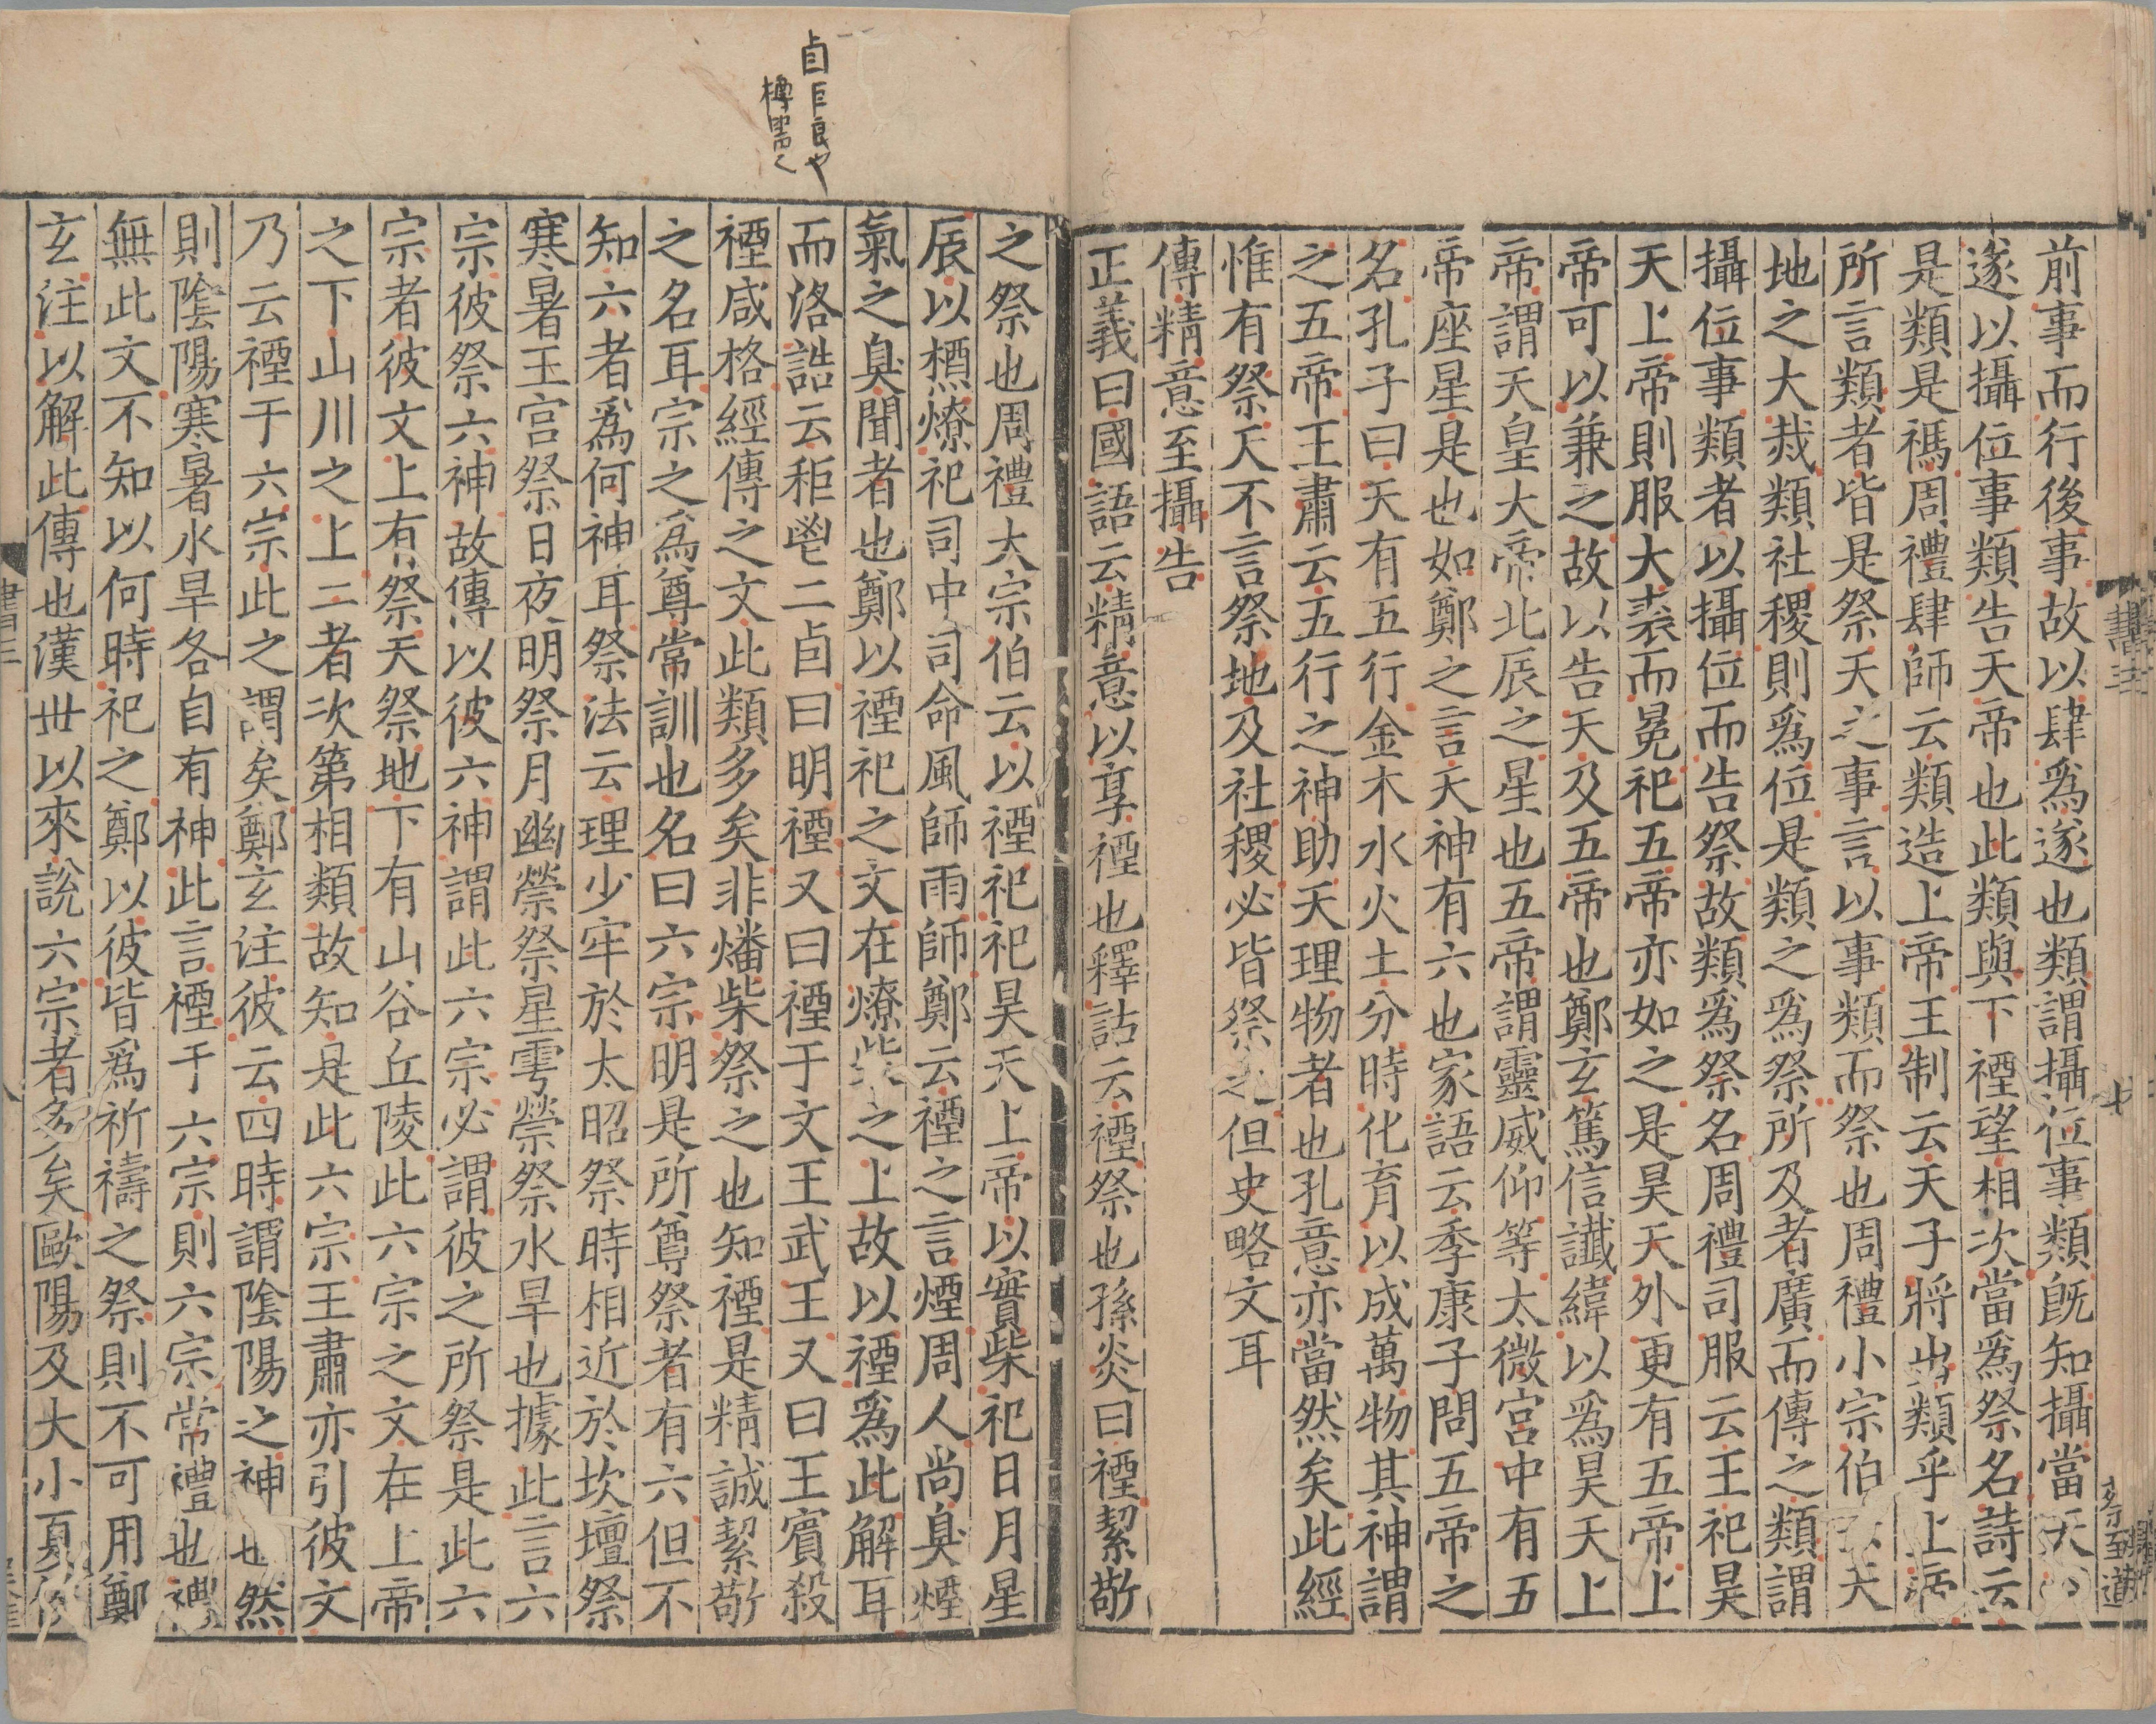 前事而行後事故以肆爲遂也類謂攝位事類旣知攝當天
遂以攝位事類告天帝也此類與下禋望相次當爲祭名詩云
是類是禡周禮肆師云類造上帝王制云天子將出類乎上帝
所言類者皆是祭天之事言以事類而祭也周禮小宗伯天
地之大烖類社稷則爲位是類之爲祭所及者廣而傳之類謂
攝位事類者以攝位而告祭故類爲祭名周禮司服云王祀昊
天上帝則服大裘而冕祀五帝亦如之是昊天外更有五帝上
帝可以兼之故以告天及五帝也鄭玄篤信讖緯以爲昊天上
帝謂天皇大帝北辰之星也五帝謂靈威仰等太微宮中有五
帝座星是也如鄭之言天神有六也家語云季康子問五帝之
名孔子曰天有五行金木水火土分時化育以成萬物其神謂
之五帝王肅云五行之神助天理物者也孔意亦當然矣此經
惟有祭天不言祭地及社稷必皆祭之但史略文耳
傳精意至攝告
正義曰國語云精意以享禋也釋詁云禋祭也孫炎曰禋絜敬
書三
七
卣巨良也
樽器
之祭也周禮大宗伯云以禋祀祀昊天上帝以實柴祀日月星
辰以槱燎祀司中司命風師雨師鄭云禋之言煙周人尚臭煙
氣之臭聞者也鄭以禋祀之文在燎柴之上故以禋爲此解耳
而洛誥云秬鬯二卣曰明禋又曰禋于文王武王又曰王賓殺
禋咸格經傳之文此類多矣非燔柴祭之也知禋是精誠絜敬
之名耳宗之爲尊常訓也名曰六宗明是所尊祭者有六但不
知六者爲何神耳祭法云埋少牢於太昭祭時相近於坎壇祭
寒暑王宮祭日夜明祭月幽禜祭星雩禜祭水旱也據此言六
宗彼祭六神故傳以彼六神謂此六宗必謂彼之所祭是此六
宗者彼文上有祭天祭地下有山谷丘陵此六宗之文在上帝
之下山川之上二者次第相類故知是此六宗王肅亦引彼文
乃云禋于六宗此之謂矣鄭玄注彼云四時謂陰陽之神也然
則陰陽寒暑水旱各自有神此言禋于六宗則六宗常禮也禮
無此文不知以何時祀之鄭以彼皆爲祈禱之祭則不可用鄭
玄注以解此傳也漢世以來說六宗者多矣歐陽及大小夏侯